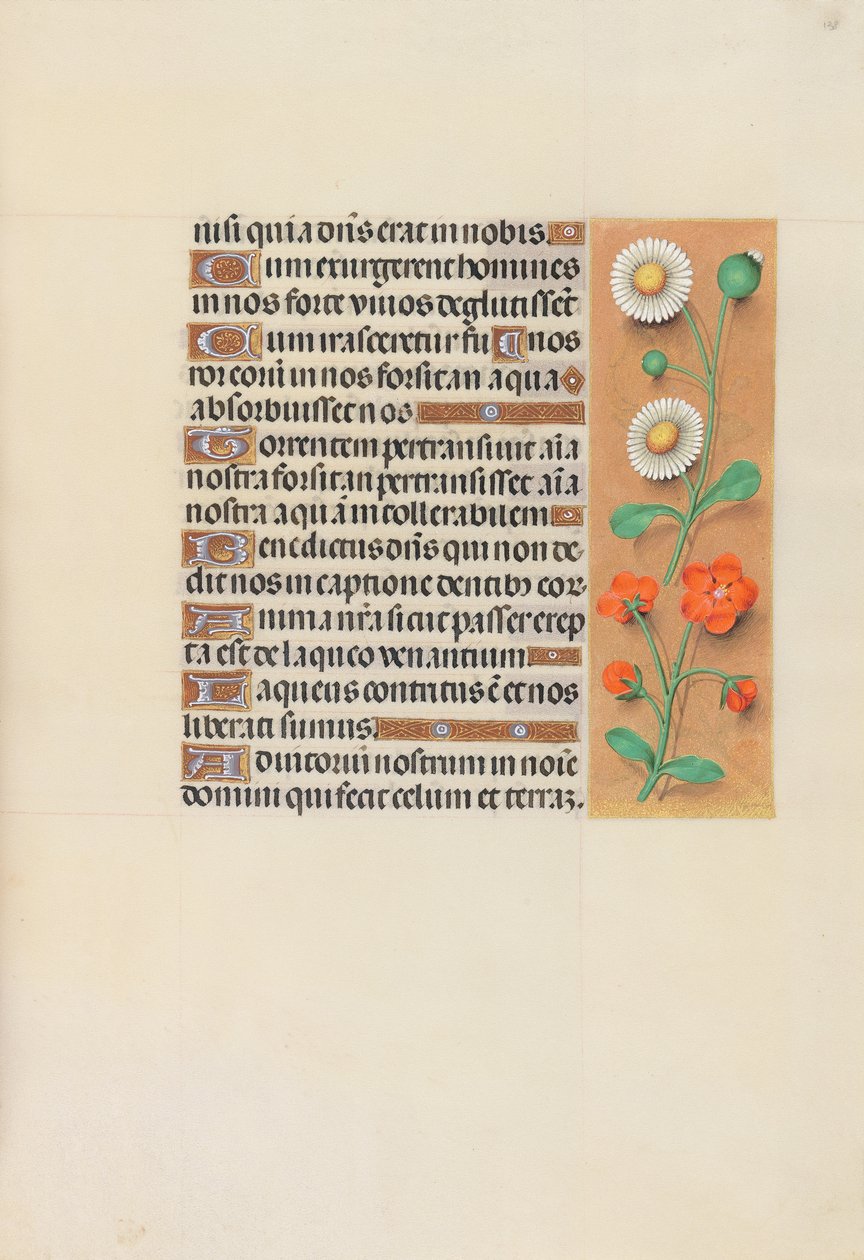 138
nisi quia dñs erat in nobis.
Cum exurgerent homines
in nos forte vivos deglutissẽt
Cum irasceretur fu
nos
ror eorũ in nos forsitan aqua
absorbuisset nos
Torrentem pertransivit aĩa
nostra forsitan pertransisset aĩa
nostra aquã intollerabilem
Benedictus dñs qui non de-
dit nos in captione dentibꝫ eorꝫ
Anima nr̃a sicut passer erep
ta est de laqueo venantium
Laqueus contritus ẽ et nos
liberati sumus.
Adiutoriũ nostrum in noĩe
domini qui fecit celum et terraꝫ.